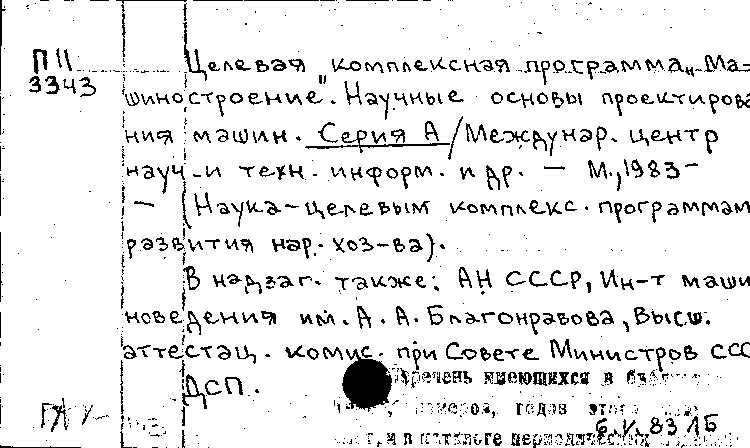 П11
3343
Целевая комплексная программа „Ма-
шиностроение". Научные основы проектирова
ния машин. Серия А / Междунар. центр
науч. и техн. информ. и др. — М., 1983–
— (Наука – целевым комплекс. программам
развития нар. хоз-ва).
В надзаг. также: АН СССР, Ин-т маши
новедения им. А. А. Благонравова, Высш.
аттестац. комис. при Совете Министров ССС
ДСП.
Перечень имеющихся в
номеров, годов
6.V.83
и в каталоге